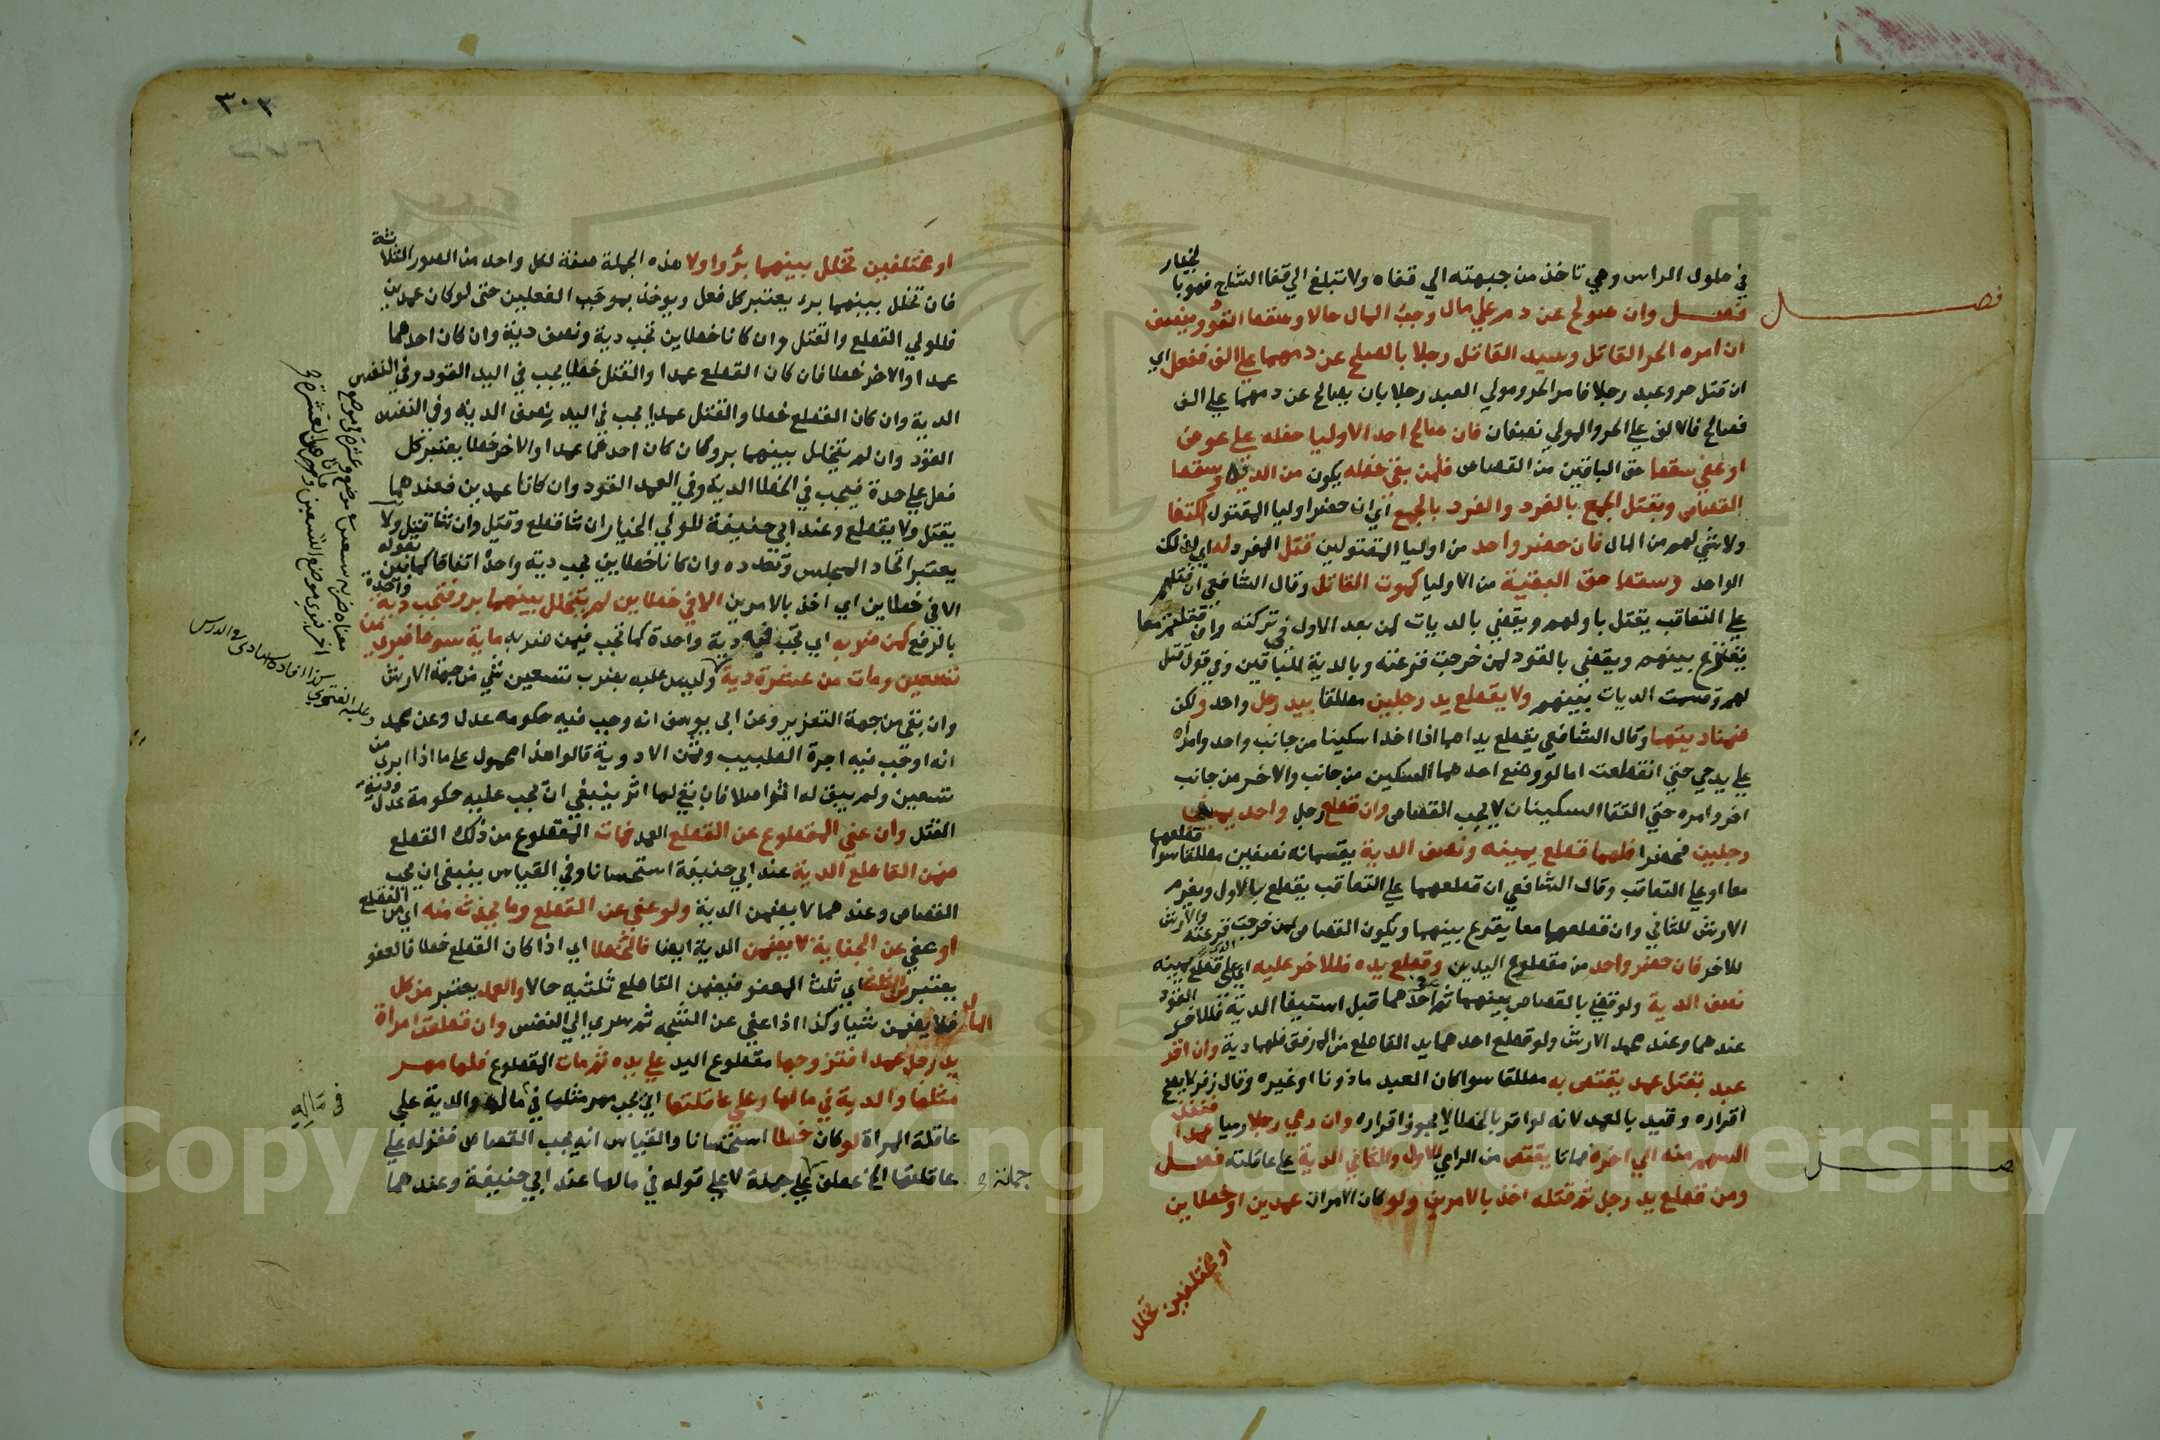 في طول الراس وهي تاخذ من جبهته الي قفاه ولا تبلغ الي قفا الشاج فهو بالخيار
فصل
فصل وان صولح عن دم علي مال وجب المال حالا وسقط القود وينصف
ان امره الحر القاتل وسيد القاتل رجلا بالصلح عن دمهما علي الف ففعل اي
ان قتل حر وعبد رجلا فامر الحر ومولي العبد رجلا بان يصالح عن دمهما علي الف
فصالح فالالف علي الحر والمولي نصفان فان صالح احد الاوليا حظه علي عوض
او عفي سقط حق الباقين من القصاص فلمن بقي حظه يكون من الدية وسقط
القصاص ويقتل الجمع بالفرد والفرد بالجمع اي ان حضر اوليا المقتول اكتفا
ولا شي لهم من المال فان حضر واحد من اوليا المقتولين قتل المفرد له اي لذلك
الواحد وسقط حق البقية من الاوليا كموت القاتل وقال الشافعي ان قتلهم
علي التعاقب يقتل باولهم ويقضي بالديات لمن بعد الاول في تركته وان قتلهم معا
يقرع بينهم ويقضي بالقود لمن خرجت قرعته وبالدية للباقين وفي قول قتل
لهم وقسمت الديات بينهم ولا يقطع يد رجلين مطلقا بيد رجل واحد ولكن
ضمنا ديتها وقال الشافعي يقطع يداهما اذا اخذا سكينا من جانب واحد وامراه
علي يده حتي انقطعت اما لو وضع احدهما السكين من جانب والاخر من جانب
اخر وامره حتي التقا السكينان لا يجب القصاص وان قطع رجل واحد يميني
رجلين فحضرا فلهما قطع يمينه ونصف الدية يقسمانه نصفين مطلقا سوا قطعهما
معا او علي التعاقب وقال الشافعي ان قطعهما علي التعاقب يقطع بالاول ويغرم
الارش للثاني وان قطعهما معا يقرع بينهما ويكون القصاص لمن خرجت قرعته والارش
للاخر فان حضر واحد من مقطوع اليدين وقطع يده فللاخر عليه اي علي قطع يمينه
نصف الدية ولو قضي بالقصاص بينهما ثم احدهما قبل استيفا الدية فللاخر القود
عندهما وعند محمد الارش ولو قطع احدهما يد القاطع من المرفق فلهما دية وان اقر
عبد بقتل عمد يقتص به مطلقا سوا كان العبد ماذونا او غيره وقال زفر لا يصح
اقراره وقيد بالعمد لانه لو اقر بالخطا لا يجوز اقراره وان رمي رجلا رميا عمدا فنفذ
السهم منه الي اخر فماتا يقتص من الرامي للاول وللثاني الدية علي عاقلته فصل
فصل
ومن قطع يد رجل ثم قتله اخذ بالامرين ولو كان الامران عمدين او خطاين
او مختلفين تخلل
٣٠٢
او مختلفين تخلل بينهما برؤ او لا هذه الجملة صفة لكل واحد من الصور الثلاثة
فان تخلل بينهما برء يعتبر كل فعل ويوخذ بموجب الفعلين حتي لو كان عمدين
فللولي القطع والقتل وان كانا خطاين تجب دية ونصف دية وان كان احدهما
عمدا والاخر خطا فان كان القطع عمدا والقتل خطا يجب في اليد القود وفي النفس
الدية وان كان القطع خطا والقتل عمدا يجب في اليد نصف الدية وفي النفس
القود وان لم يتخلل بينهما برو كان كان احدهما عمدا والاخر خطا يعتبر كل
فعل علي حدة فيجب في الخطا الدية وفي العمد القود وان كانا عمدين فعندهما
يقتل ولا يقطع وعند ابي حنيفة للولي الخيار ان شا قطع وقتل وان شا قتل ولا
يعتبر اتحاد المجلس وتعدده وان كانا خطاين يجب دية واحدة اتفاقا كما بين بقوله
الا في خطاين اي اخذ بالامرين الا في خطاين لم يتخلل بينهما برو فتجب دية واحدة
بالرفع كمن ضربه اي تجب فيه دية واحدة كما تجب فيمن ضربه ماية سوط فبري من
تسعين ومات من عشرة دية وليس عليه بضرب تسعين شي من جهة الارش
وان بقي من جهة التعزير وعن ابي يوسف انه وجب فيه حكومة عدل وعن محمد
انه اوجب فيه اجرة الطبيب وثمن الادوية قالوا هذا محمول علي ما اذا ابري من
تسعين ولم يبق له اثر اصلا فان بقي لها اثر ينبغي ان يجب عليه حكومة عدل ودية
القتل وان عفي المقطوع عن القطع العمد فمات المقطوع من ذلك القطع
ضمن القاطع الدية عند ابي حنيفة استحسانا وفي القياس ينبغي ان يجب
القصاص وعندهما لا يضمن الدية ولو عفي عن القطع وما يحدث منه اي من القطع
او عفي عن الجناية لا يضمن الدية ايضا فالخطا اي اذا كان القطع خطا فالعفو
يعتبر من الثلث اي ثلث المعفو فيضمن القاطع ثلثيه حالا والعمد يعتبر من كل
المال فلا يضمن شيا وكذا اذا عفي عن الشجه ثم سري الي النفس وان قطعت امراة
يد رجل عمدا فتزوجها مقطوع اليد علي يده ثم مات المقطوع فلها مهر
مثلها والدية في مالها وعلي عاقلتها اي يجب مهر مثلها في ماله والدية علي
عاقلة المراة لو كان خطا استحسانا والقياس انه يجب القصاص فقوله علي
عاقلتها الخ عطف علي جملة لا علي قوله في مالها عند ابي حنيفة وعندهما
معناه ضربه تسعين في موضع وعشرة في موضع
اخر فبري موضع التسعين وسري موضع العشرة
وعليه الفتوي كذا افاده استاذي في الدرس
في ماله
جملة